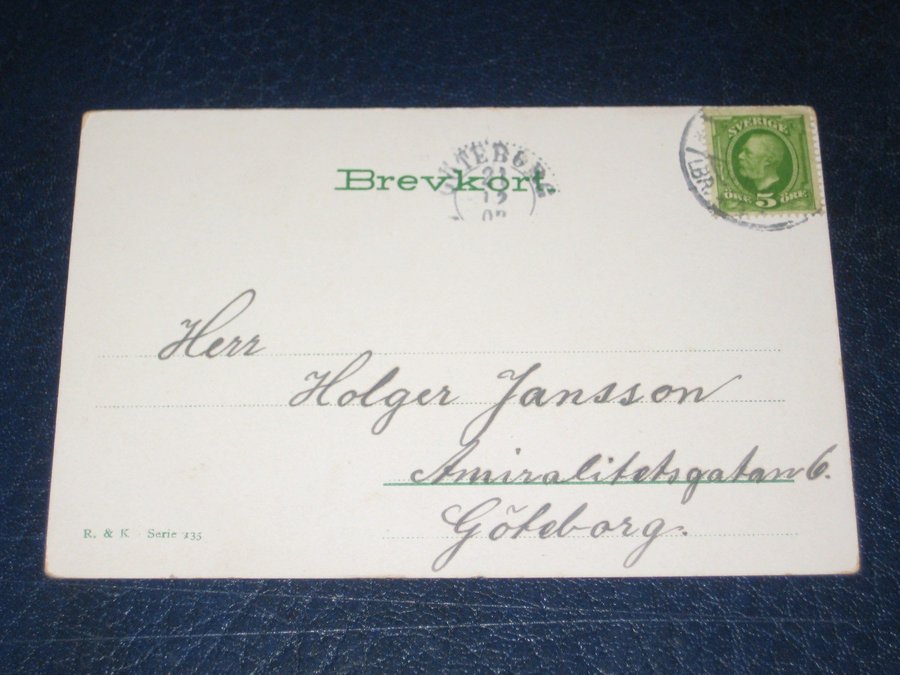 Brevkort
GÖTEBORG
21
12
SVERIGE
ÖRE 5 ÖRE
LBR.
Herr
Holger Jansson
Amiralitetsgatan 6.
Göteborg.
R. & K Serie 135